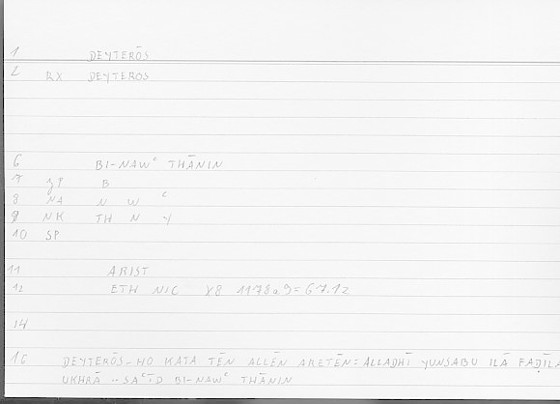 1 DEYTERŌS
2 RX DEYTEROS
6 BI-NAWᶜ THĀNIN
7 JP B
8 NA N W ᶜ
9 NK TH N Y
10 SP
11 ARIST
12 ETH NIC X8 1178a9 = 67.12
14
16 DEYTERŌS - HO KATA TĒN ALLĒN ARETĒN = ALLADHĪ YUNSABU ILĀ FAḌĪLA
UKHRĀ .. SAᶜĪD BI-NAWᶜ THĀNIN